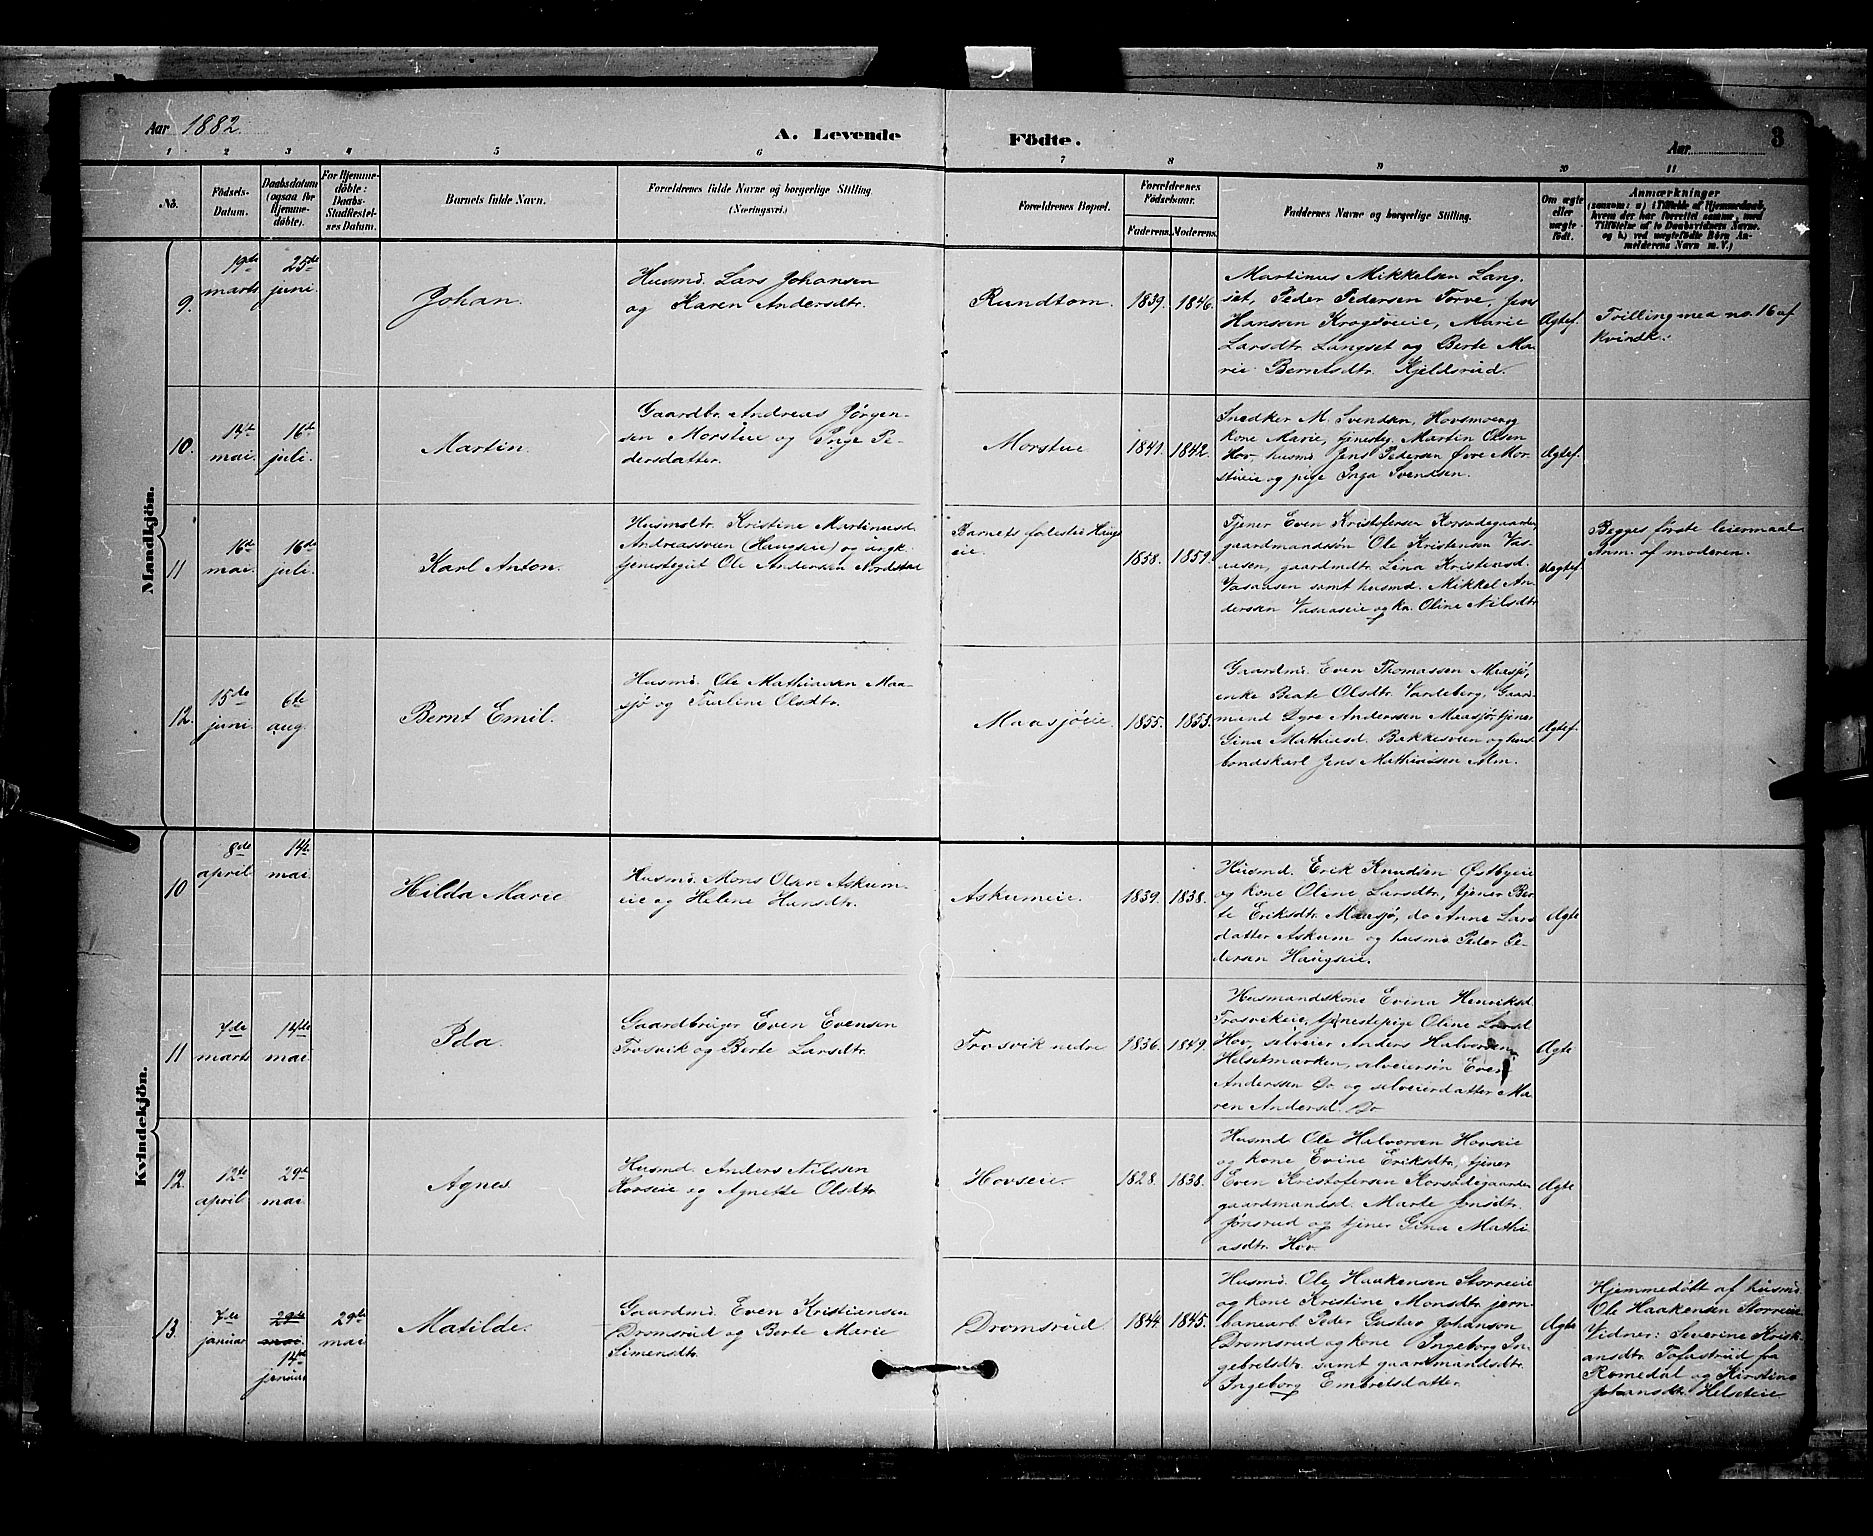 Aar 1882
A. Levende
Födte.
Aar
3
1 2 3 4 5 6 7 8 9 10 11
No.
Födsels-
Datum.
Daabsdatum
(ogsaa for
Hjemme-
döbte).
For Hjemme-
döbte:
Daabs-
Stadfæstel-
ses Datum.
Barnets fulde Navn.
Forældrenes fulde Navne og borgerlige Stilling.
(Næringsvei.)
Forældrenes Bopæl.
Forældrenes
Födselsaar.
Faderens. Moderens.
Faddernes Navne og borgerlige Stilling.
Om ægte
eller
uægte
födt.
Anmærkninger
(saasom: a) i Tilfælde af Hjemmedaab,
hvem der har forrettet samme, med
Tilföielse af to Daabsvidners Navne.
og b) ved uægtefödte Börn An-
melderens Navn m. V.)
Mandkjön.
9.
19de
marts
25de
juni.
Johan.
Husmd. Lars Johansen
og Karen Andersdtr.
Rundtom.
1839.
1846.
Martinus Mikkelsen Lang-
set, Peder Pedersen Torve, Jens
Hansen Krogsveie, Marie
Larsdtr. Langset og Berte Ma-
rie Berntsdtr. Kjeldsrud.
Ægtef.
Tvilling med no. 16 af
kvindk.
10.
13de
mai.
16de
juli.
Martin.
Gaardbr. Andreas Jørgen-
sen Morstue og Inge Pe-
dersdatter.
Morstue
1841.
1842.
Snedker M. Svendsen, Hovsmoen og
kone Marie, tjenestg. Martin Olsen
Hov, husmd. Jens Pedersen Øvre Mor-
stueie og pige Inga Svendsen.
Ægtef.
11
16de
mai.
16de
juli.
Karl Anton.
Husmdtr. Kristine Martinusd.
Andreassveen (Haugseie) og ungk.
tjenestegut Ole Andersen Nordstue
Barnets fødested Haugs-
eie.
1858.
1859.
Tjener Even Kristofersen Korsødegaarden
gaardmandssøn Ole Kristensen Vas-
aasen, gaardmdtr. Lina Kristensd.
Vasaasen samt husmd. Mikkel An-
dersen Vasaaseie og kn. Oline Nilsdtr.
Uægtef.
Begges første leiermaal
Anm. af moderen.
12.
15de
juni.
6te
aug.
Bernt Emil.
Husmd. Ole Mathiassen Maa-
sjø og Pauline Olsdtr.
Maasjøeie.
1855.
1853.
Gaardmd. Even Thomassen Maasjø,
enke Beate Olsdtr. Varleberg, Gaard-
mand Dyre Andersen Maasjø, tjener
Gina Mathiasd. Bakkesveen og hus-
bondskarl Jens Mathiassen Mm.
Ægtef.
Kvindekjön.
10
8de
april.
14de
mai.
Hilda Marie
Husmd. Mons Olsen Askum-
eie og Helene Hansdtr.
Askumeie.
1839.
1838.
Husmd. Erik Knudsen Østbyeie
og kone Oline Larsdtr., tjener Ber-
te Eriksdtr. Maasjø, do Anne Lars
datter Askum og husmd. Peder Pe-
dersen Haugseie.
Ægte
11
7de
marts
14de
mai.
Ida.
Gaardbruger Even Evensen
Trosvik og Berte Larsdtr.
Trosvik nedre
1836.
1849.
Husmandskone Evina Henriksd.
Trosvikeie, tjenestepige Oline Larsd.
Hov, selveier Anders Halvorsen
Helsetmarken, selveiersøn Even
Anderssen Do. og selveierdatter Ma-
ren Andersd. Do
Ægte
12.
12te
april.
29de
mai
Agnes
Husmd. Anders Nilssen
Hovseie og Agnette Olsdtr.
Hovseie.
1828.
1838.
Husmd. Ole Halvorsen Hovseie
og kone Evine Eriksdtr., tjener
Even Kristofersen Korsødegaarden
gaardmandsd. Marte Jonsdtr.
Jønsrud og tjener Gina Mathi-
asdtr. Hov.
Ægte
13.
7de
januar
29de
mai.
14de
januar
29de
mai
Matilde.
Gaardmd. Even Kristiansen
Dromsrud og Berte Marie
Simensdtr.
Dromsrud
1844.
1845.
Husmd. Ole Haakensen Storreeie
og kone Kristine Monsdtr. jern-
banearb. Peder Gustav Johanson
Dromsrud og kone Ingeborg In-
gebretsdtr. samt gaardmandsdtr.
Ingeborg Embretsdatter.
Ægte
Hjemmedøbt af husmd.
Ole Haakensen Storreeie
Vidner: Severine Kristi-
ansdtr. Tofastrud fra
Romedal og Kirstine
Johansdtr. Helseteie